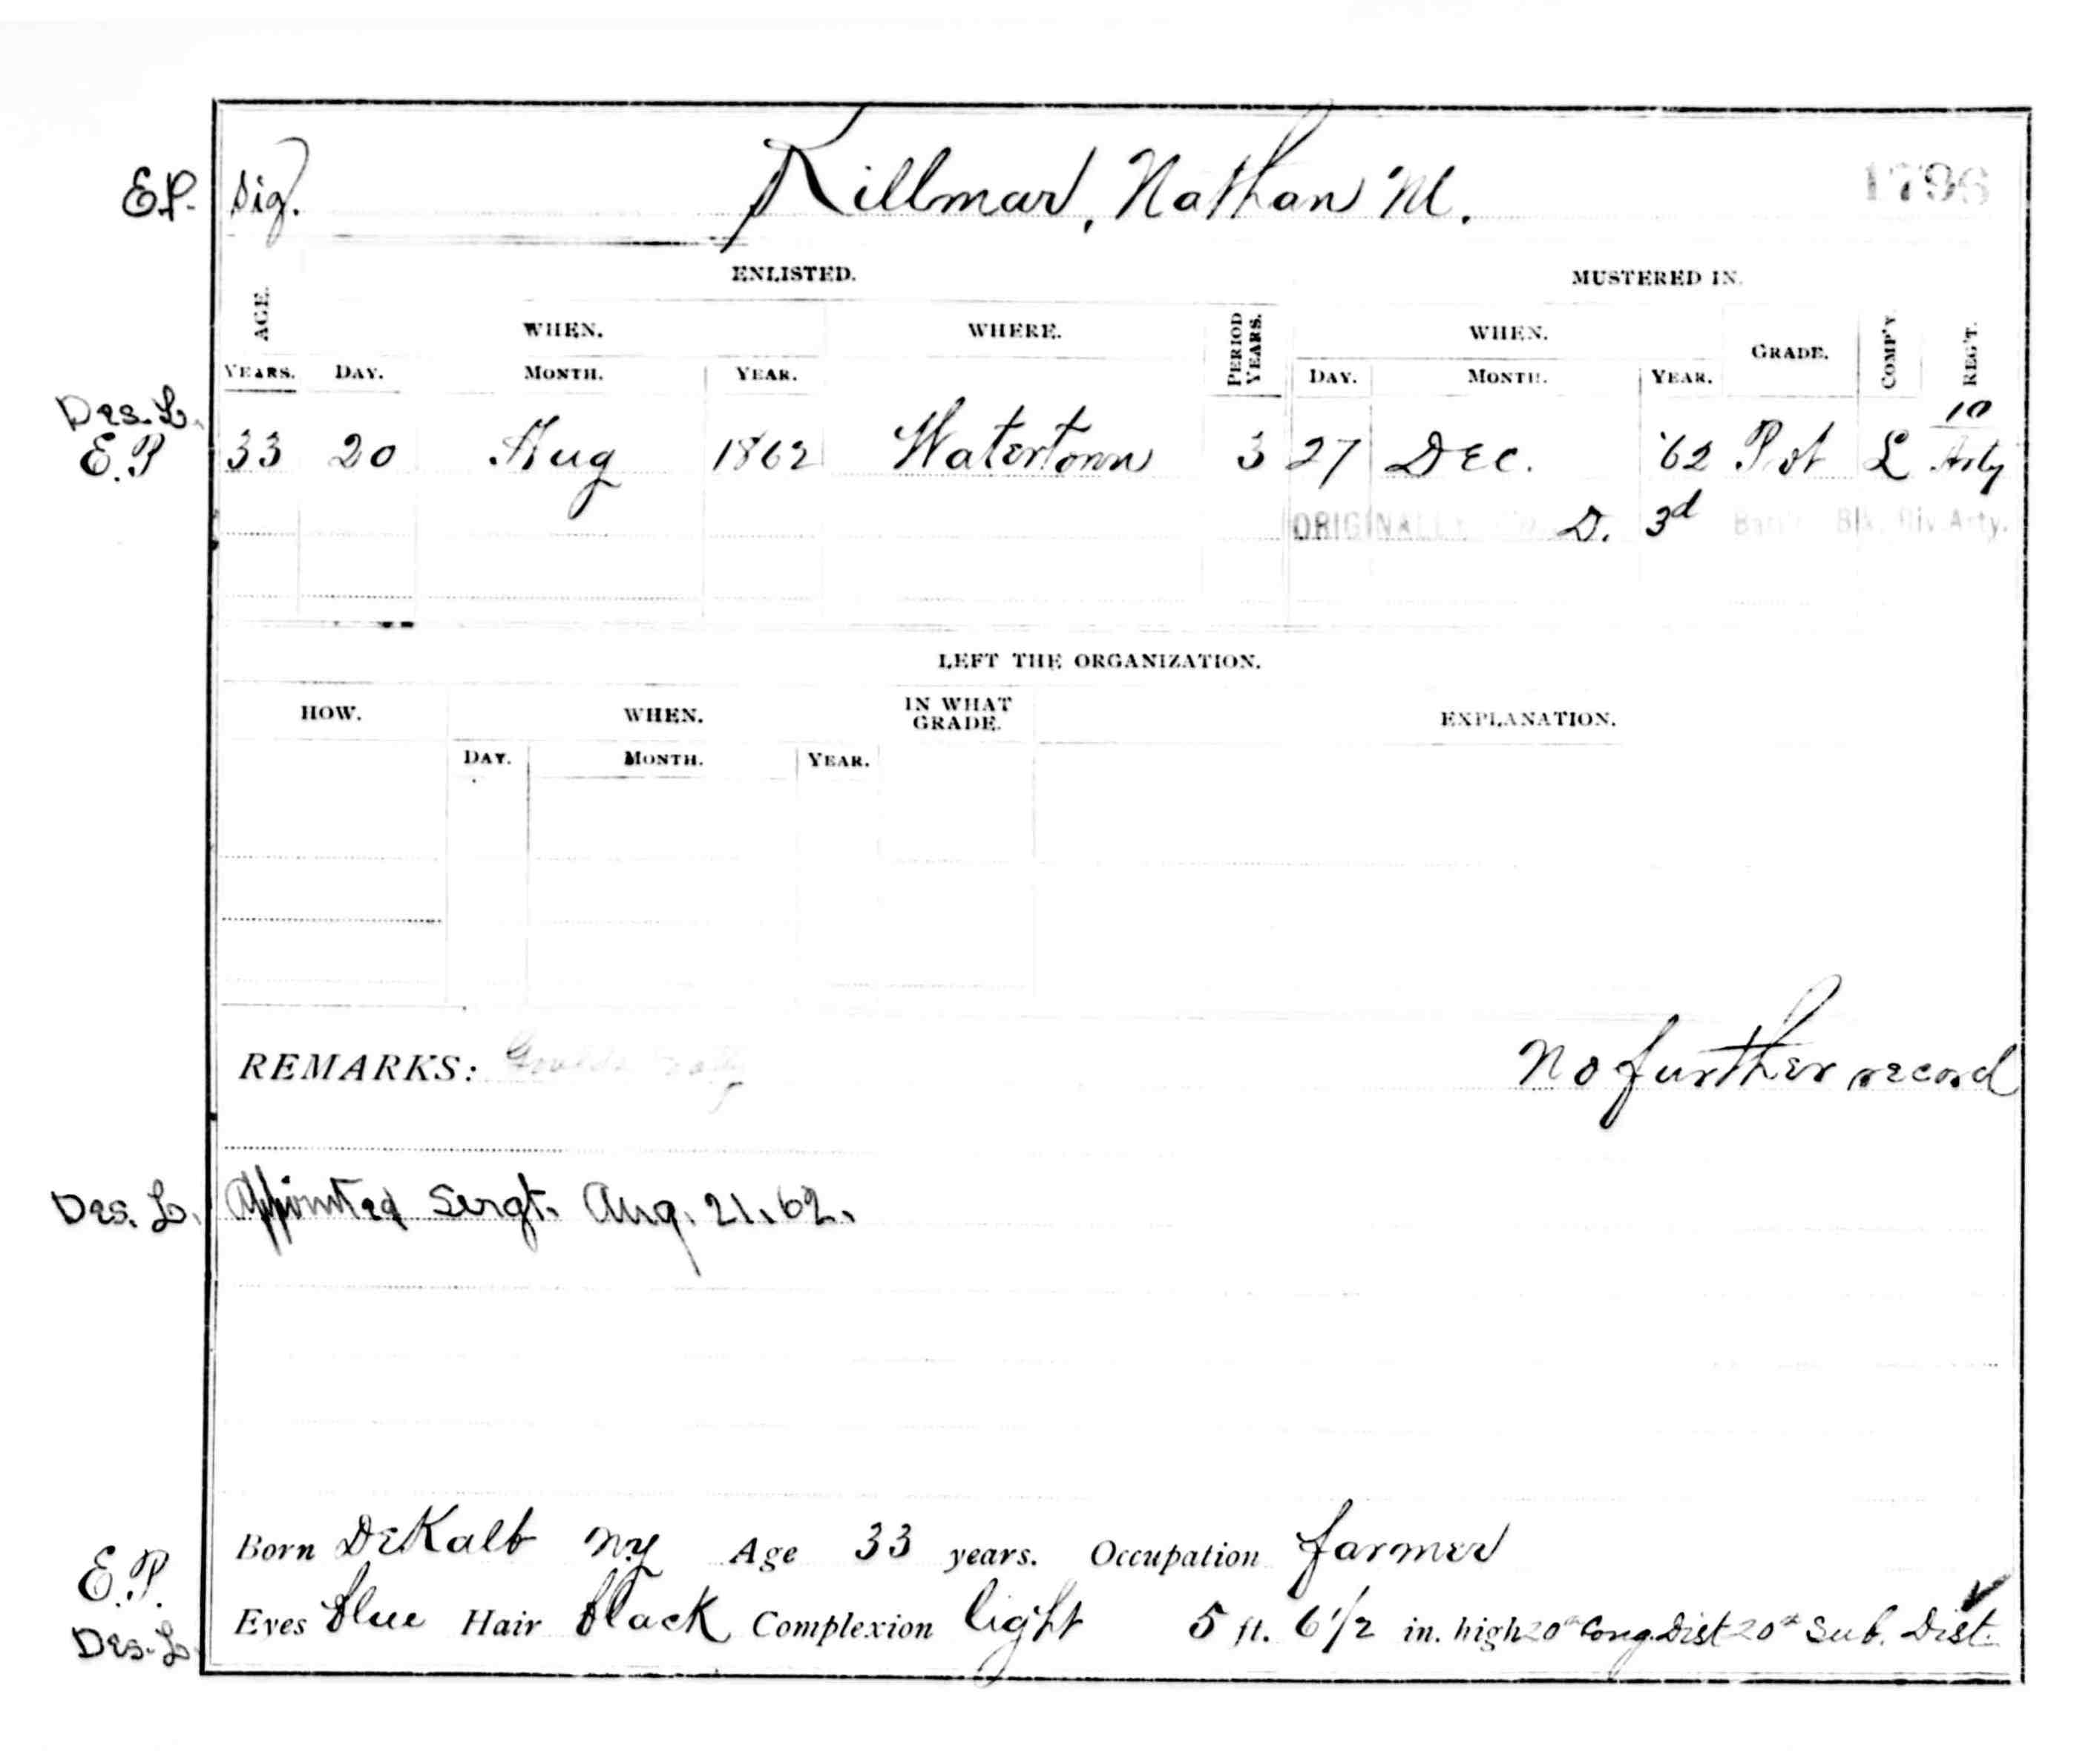 E.P. Sig. Killmar, Nathan M. 1796
ENLISTED. MUSTERED IN.
AGE. WHEN. WHERE. PERIOD YEARS. WHEN. GRADE. COMP'Y. REG'T.
YEARS. DAY. MONTH. YEAR. DAY. MONTH. YEAR.
Des. L. 10
E.P 33 20 Aug 1862 Watertown 3 27 Dec. '62 Pvt L Arty
ORIGINALLY D. 3d Batt'n Blk. Riv. Arty.
LEFT THE ORGANIZATION.
HOW. WHEN. IN WHAT GRADE. EXPLANATION.
DAY. MONTH. YEAR.
REMARKS: No further record
Des. L. Appointed Sergt. Aug. 21. 62.
Born DeKalb NY Age 33 years. Occupation farmer
E.P.
Eyes blue Hair black Complexion light 5 ft. 6 1/2 in. high 20th Cong. Dist 20th Sub. Dist.
Des. L.